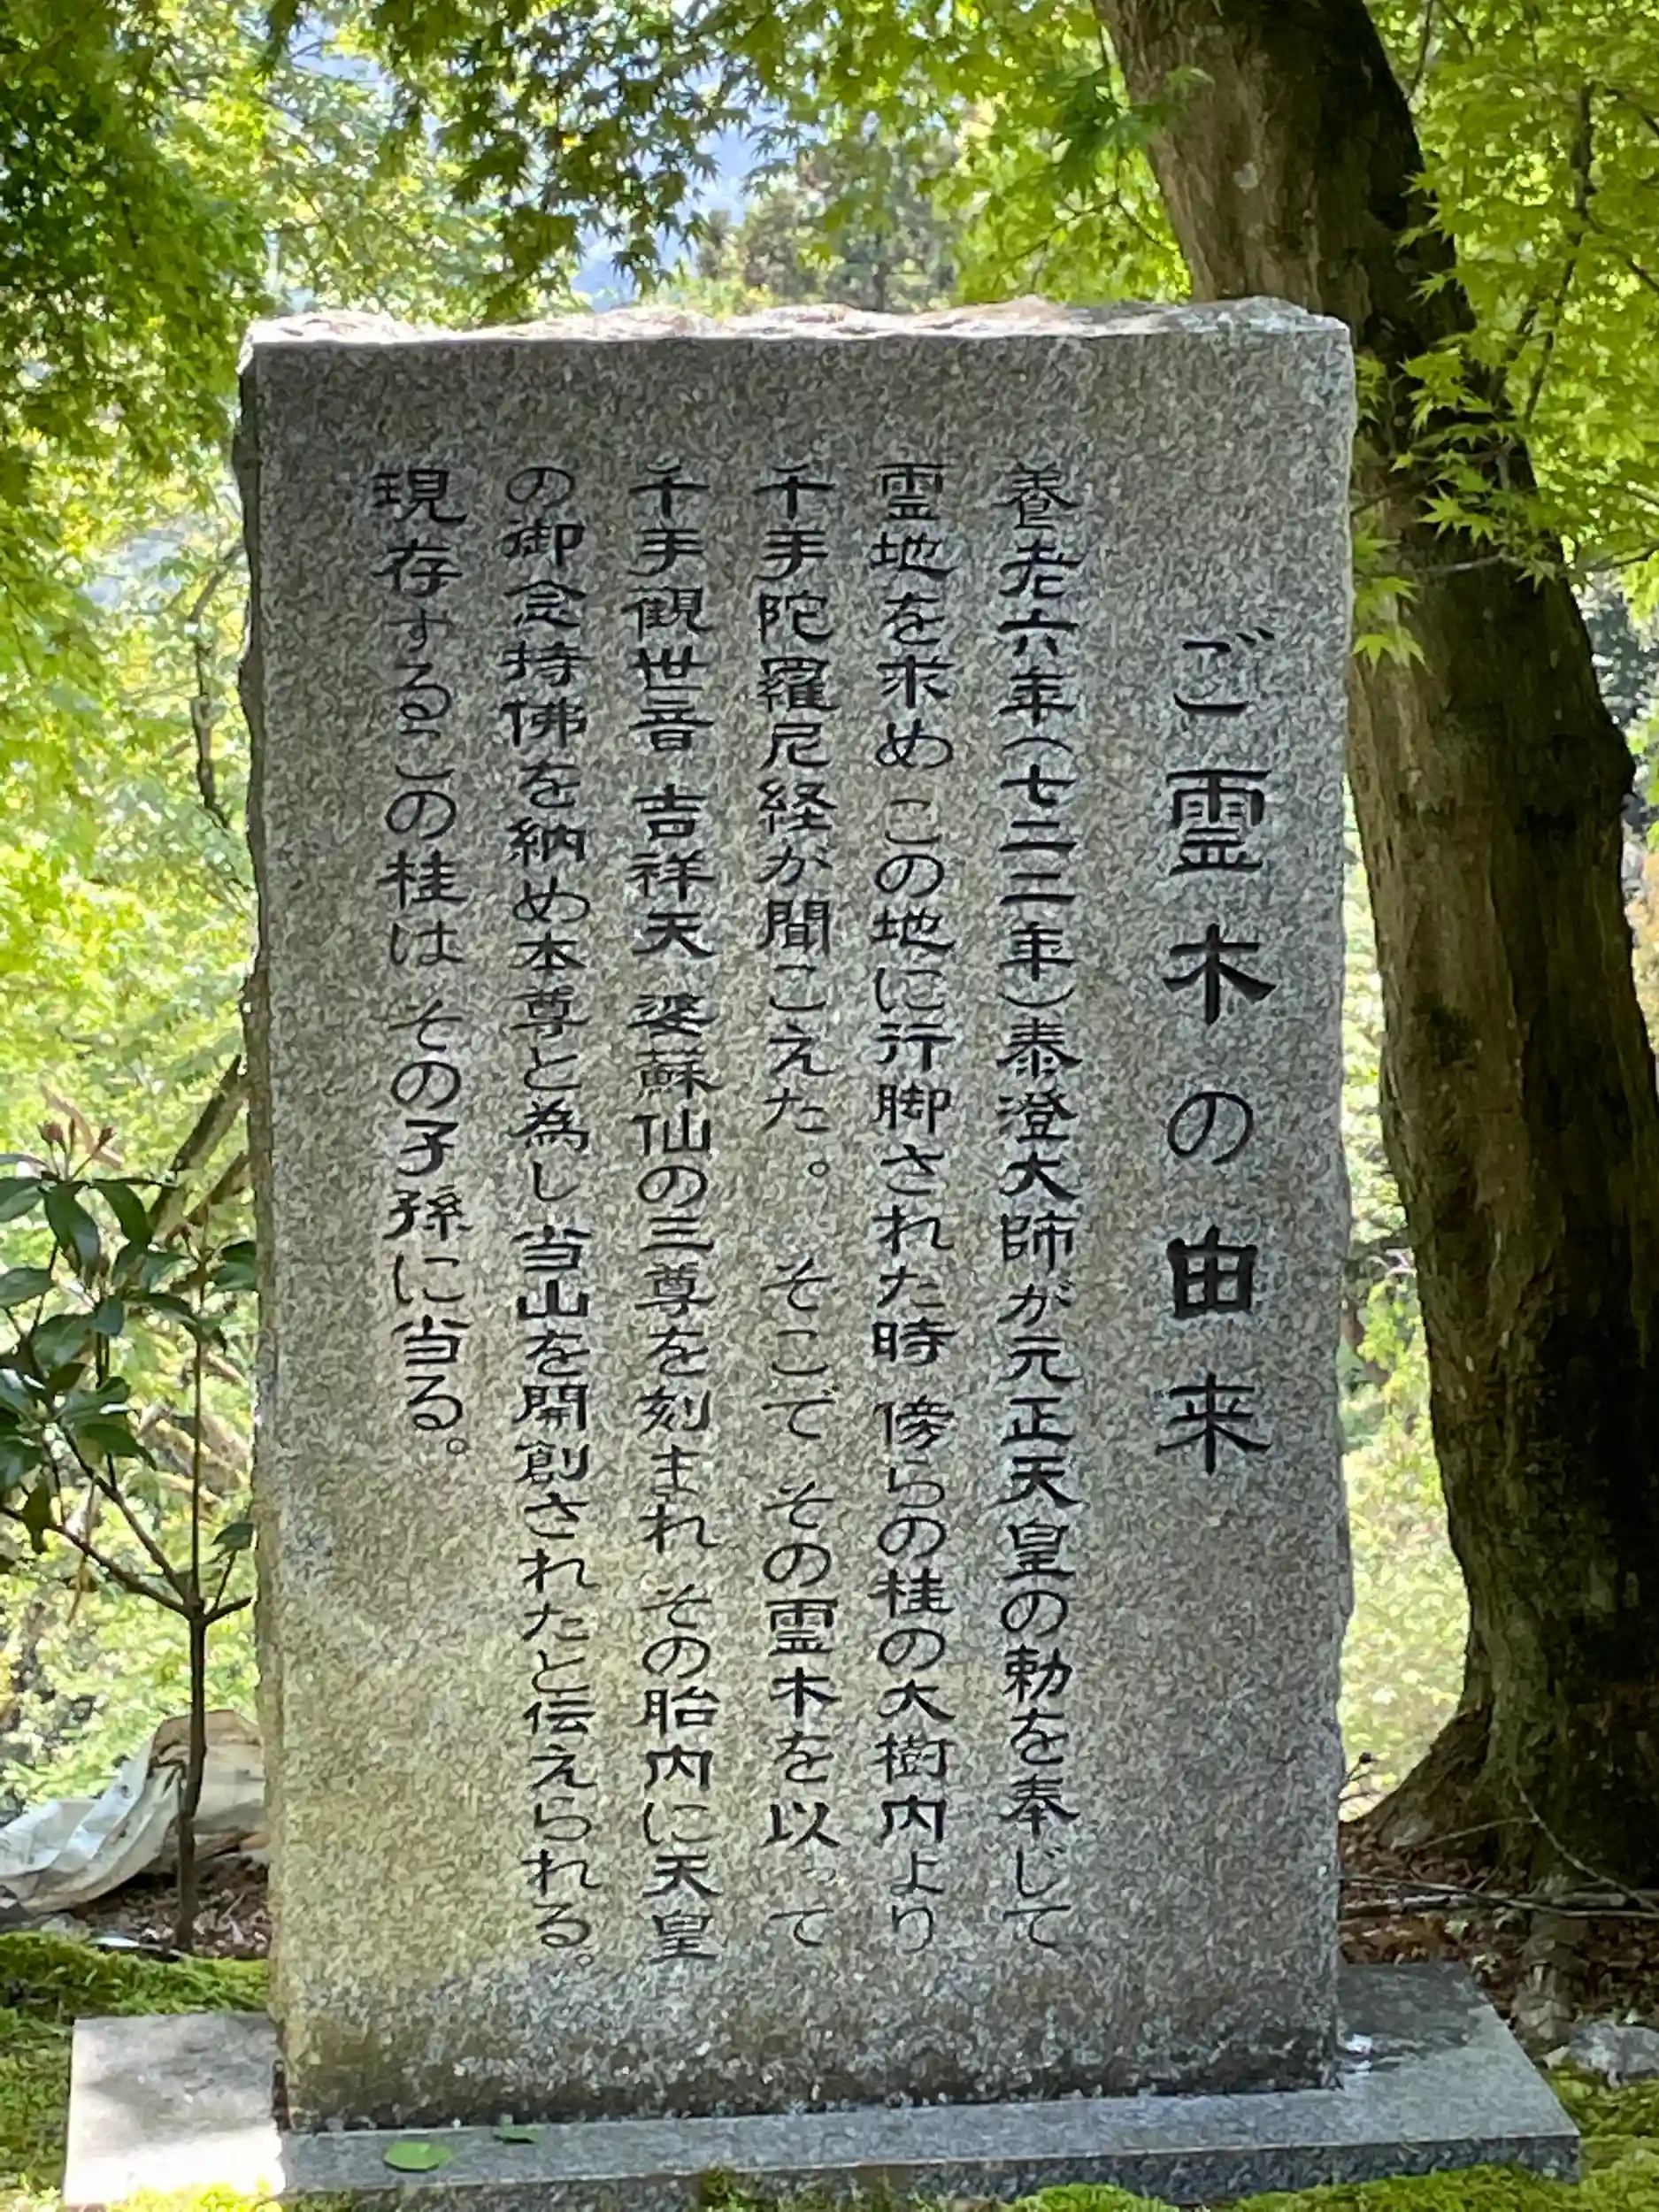 ご霊木の由来
養老六年(七二二年)泰澄大師が元正天皇の勅を奉じて
霊地を求め この地に行脚された時 傍らの桂の大樹内より
千手陀羅尼経が聞こえた。 そこで その霊木を以って
千手観世音 吉祥天 婆蘇仙の三尊を刻まれ その胎内に天皇
の御念持佛を納め本尊と為し 当山を開創されたと伝えられる。
現存するこの桂は その子孫に当る。